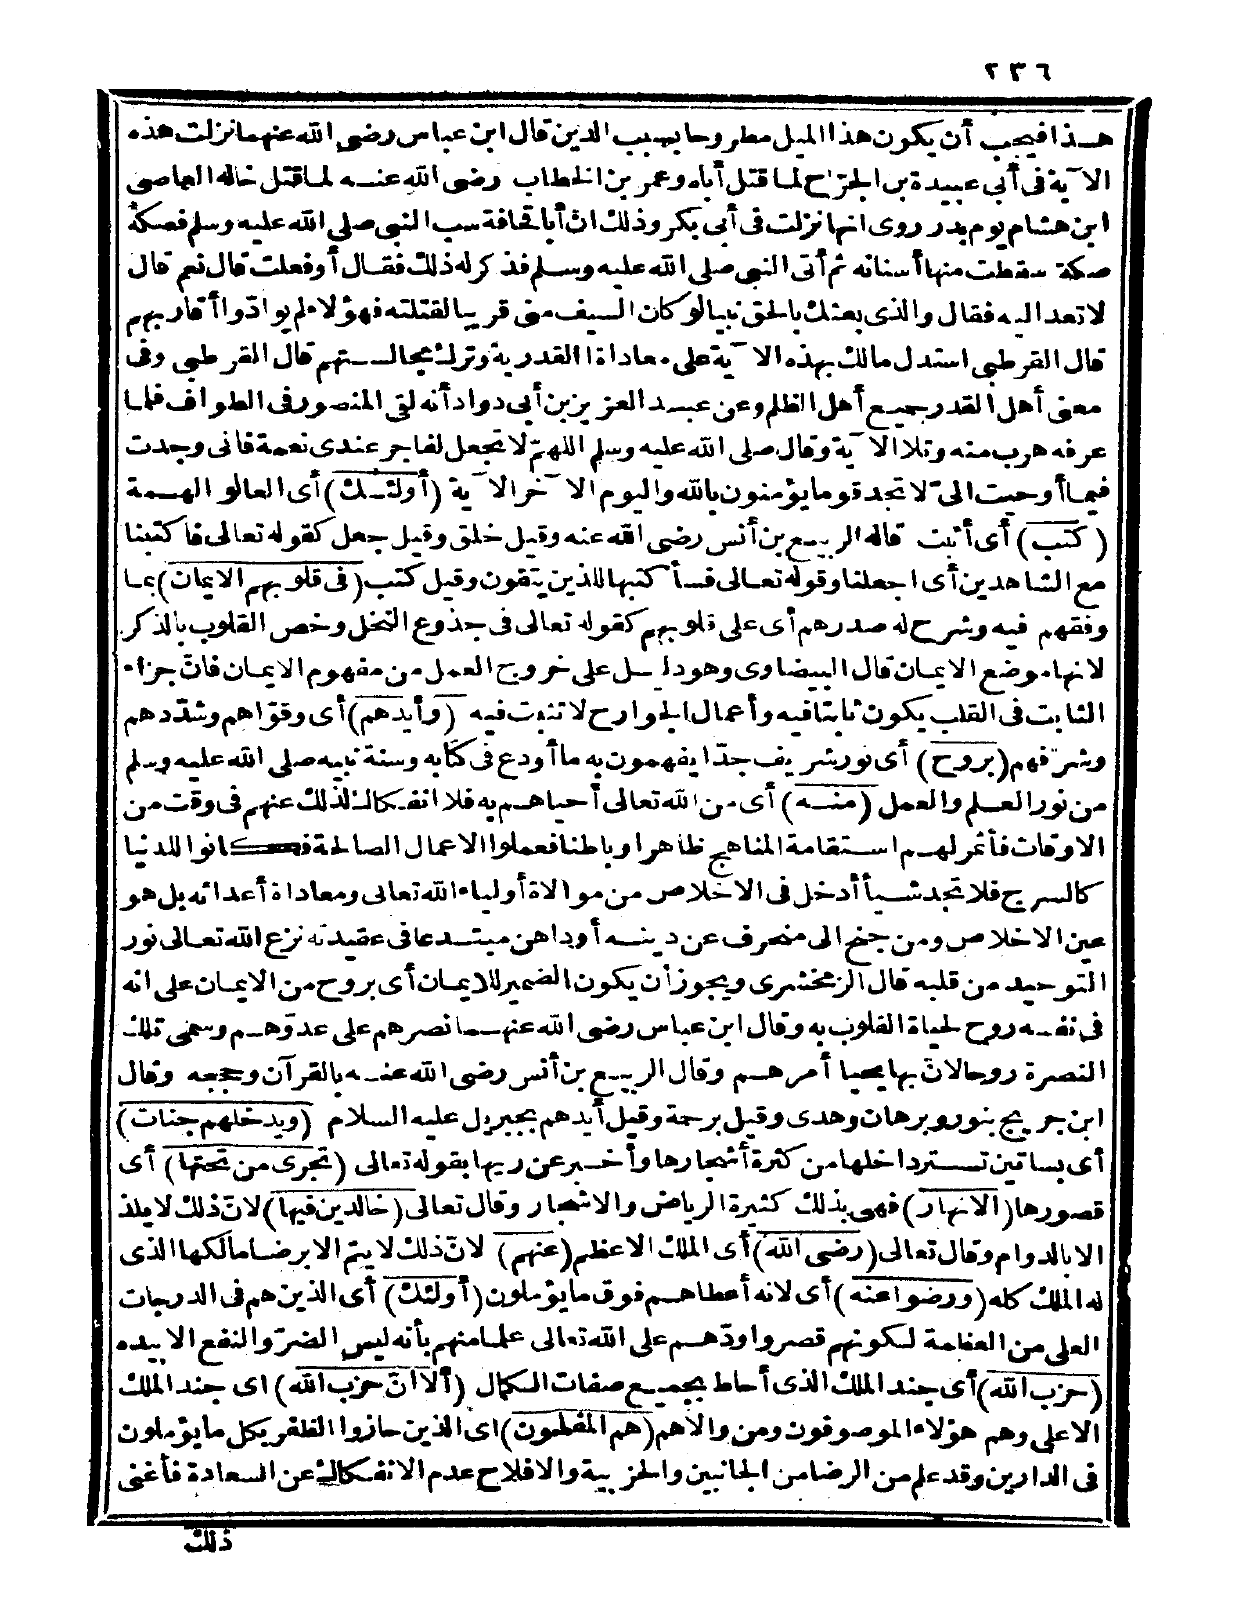 ٢٣٦
هذا فيجب أن يكون هذا الميل مطروحا بسبب الدين قال ابن عباس رضى الله عنهما نزلت هذه
الآية فى أبى عبيدة بن الجرّاح لما قتل أباه وعمر بن الخطاب رضى الله عنه لما قتل خاله العاصى
ابن هشام يوم بدر روى انها نزلت فى أبى بكر وذلك انّ أبا قحافة سب النبى صلى الله عليه وسلم فصكه
صكة سقطت منها أسنانه ثم أتى النبى صلى الله عليه وسلم فذكر له ذلك فقال أو فعلت قال نعم قال
لا تعد اليه فقال والذى بعثك بالحق نبيا لو كان السيف منى قريبا لقتلته فهؤلاء لم يوادّوا أقاربهم
قال القرطبى استدل مالك بهذه الآية على معاداة القدرية وترك مجالستهم قال القرطبى وفى
معنى أهل القدر جميع أهل الظلم وعن عبد العزيز بن أبى دواد أنه لقى المنصور فى الطواف فلما
عرفه هرب منه وتلا الآية وقال صلى الله عليه وسلم اللهمّ لا تجعل لفاجر عندى نعمة فانى وجدت
فيما أوحيت الىّ لا تجد قوما يؤمنون بالله واليوم الآخر الآية (أولئك) أى العالو الهمة
(كتب) أى أثبت قاله الربيع بن أنس رضى الله عنه وقيل خلق وقيل جعل كقوله تعالى فاكتبنا
مع الشاهدين أى اجعلنا وقوله تعالى فسأكتبها للذين يتقون وقيل كتب (فى قلوبهم الايمان) بما
وفقهم فيه وشرح له صدرهم أى على قلوبهم كقوله تعالى فى جذوع النخل وخص القلوب بالذكر
لانها موضع الايمان قال البيضاوى وهو دليل على خروج العمل من مفهوم الايمان فانّ جزاء
الثابت فى القلب يكون ثابتا فيه وأعمال الجوارح لا تثبت فيه (وأيدهم) أى وقوّاهم وشدّدهم
وشرّفهم (بروح) أى نور شريف جدّا يفهمون به ما أودع فى كتابه وسنة نبيه صلى الله عليه وسلم
من نور العلم والعمل (منه) أى من الله تعالى أحياهم به فلا انفكاك لذلك عنهم فى وقت من
الاوقات فأثمر لهم استقامة المناهج ظاهرا وباطنا فعملوا الاعمال الصالحة فكانوا للدنيا
كالسرج فلا تجد شيأ أدخل فى الاخلاص من موالاة أولياء الله تعالى ومعاداة أعدائه بل هو
عين الاخلاص ومن جنح الى منحرف عن دينه أو داهن مبتدعا فى عقيدته نزع الله تعالى نور
التوحيد من قلبه قال الزمخشرى ويجوز أن يكون الضمير للايمان أى بروح من الايمان على انه
فى نفسه روح لحياة القلوب به وقال ابن عباس رضى الله عنهما نصرهم على عدوّهم وسمى تلك
النصرة روحا لانّ بها يحيا أمرهم وقال الربيع بن أنس رضى الله عنه بالقرآن وحججه وقال
ابن جريج بنور وبرهان وهدى وقيل برحمة وقيل أيدهم بجبريل عليه السلام (ويدخلهم جنات)
أى بساتين تستر داخلها من كثرة أشجارها وأخبر عن ريها بقوله تعالى (تجرى من تحتها) أى
قصورها (الانهار) فهى بذلك كثيرة الرياض والاشجار وقال تعالى (خالدين فيها) لانّ ذلك لا يلذ
الا بالدوام وقال تعالى (رضى الله) أى الملك الاعظم (عنهم) لانّ ذلك لا يتمّ الا برضا مالكها الذى
له الملك كله (ورضوا عنه) أى لانه أعطاهم فوق ما يؤملون (أولئك) أى الذين هم فى الدرجات
العلى من العظمة لكونهم قصروا ودّهم على الله تعالى علما منهم بأنه ليس الضرّ والنفع الا بيده
(حزب الله) أى جند الملك الذى أحاط بجميع صفات الكمال (ألا انّ حزب الله) اى جند الملك
الاعلى وهم هؤلاء الموصوفون ومن والاهم (هم المفلحون) اى الذين حازوا الظفر بكل ما يؤملون
فى الدارين وقد علم من الرضا من الجانبين والحزبية والافلاح عدم الانفكاك عن السعادة فأغنى
ذلك